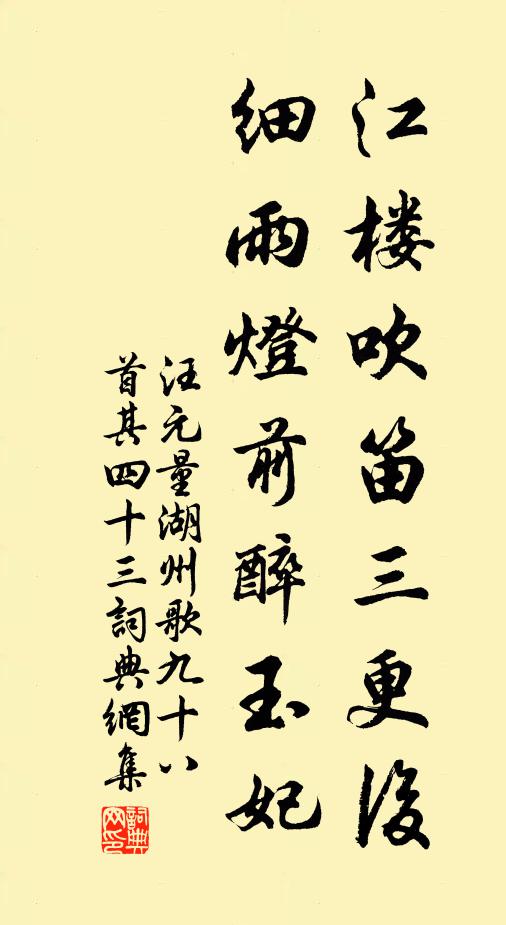 江楼吹笛三更後
細雨燈前醉玉妃
汪元量湖州歌九十八
首其四十三詞典網集
詞典
网印